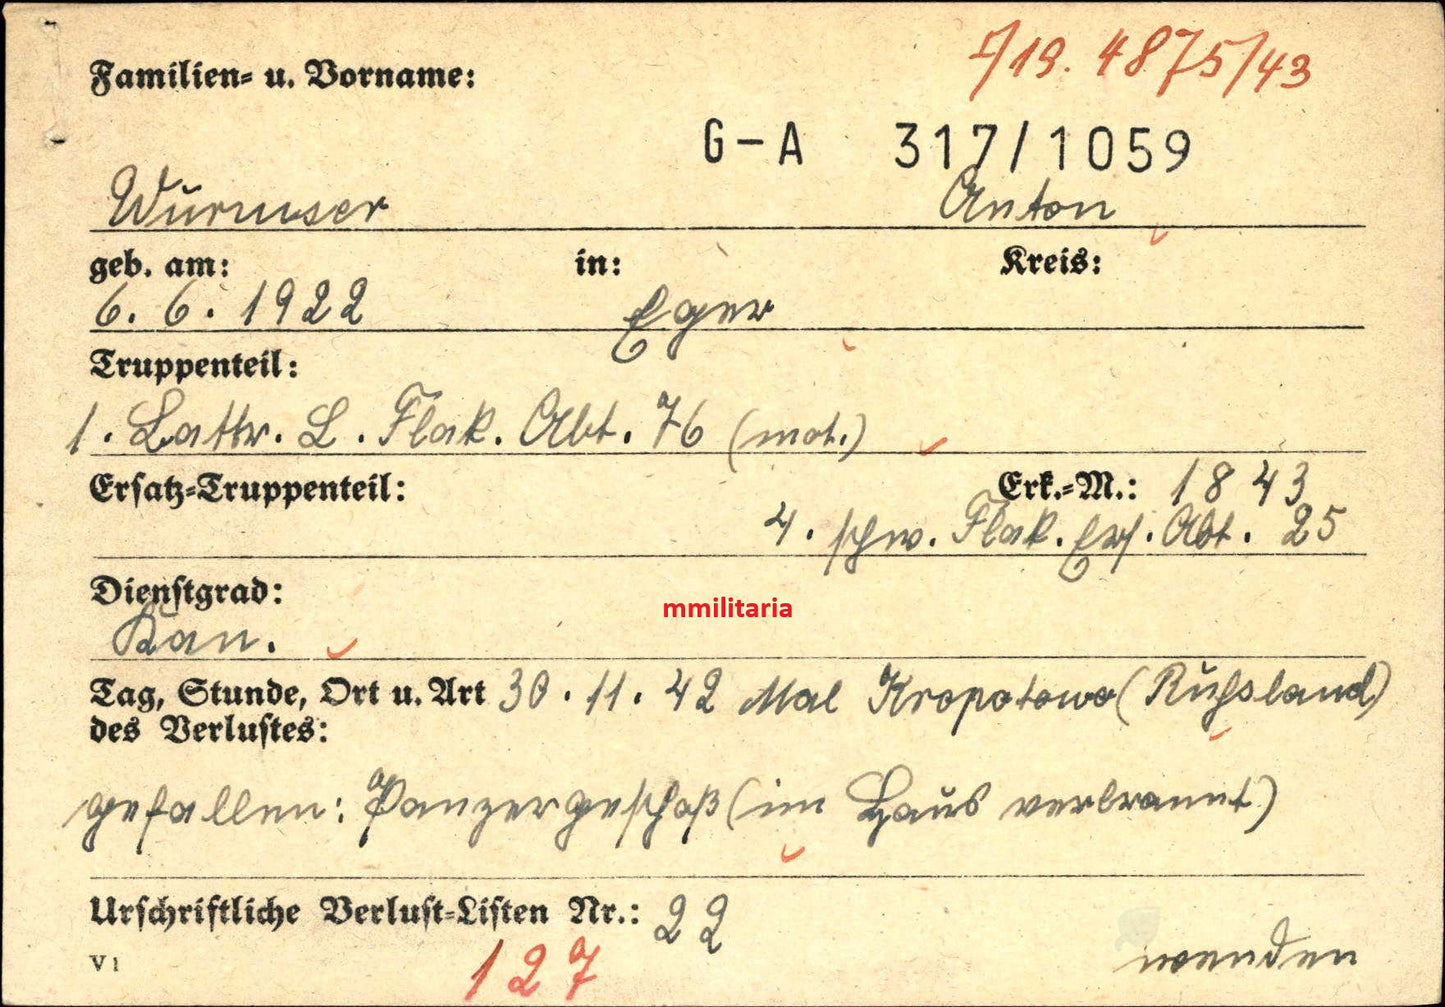 I/19. 4875/43
Familien- u. Vorname:
G-A 317/1059
Wurmser Anton
geb. am: in: Kreis:
6. 6. 1922 Eger
Truppenteil:
1. Battr. L. Flak. Abt. 76 (mot.)
Ersatz-Truppenteil: Erk.-M.: 1843
4. schw. Flak. Ers. Abt. 25
Dienstgrad:
Kan.
mmilitaria
Tag, Stunde, Ort u. Art 30. 11. 42 Mal Kropotowo (Rußland)
des Verlustes:
gefallen: Panzergeschoß (im Haus verbrannt)
Urschriftliche Verlust-Listen Nr.: 22
V1
127
wenden